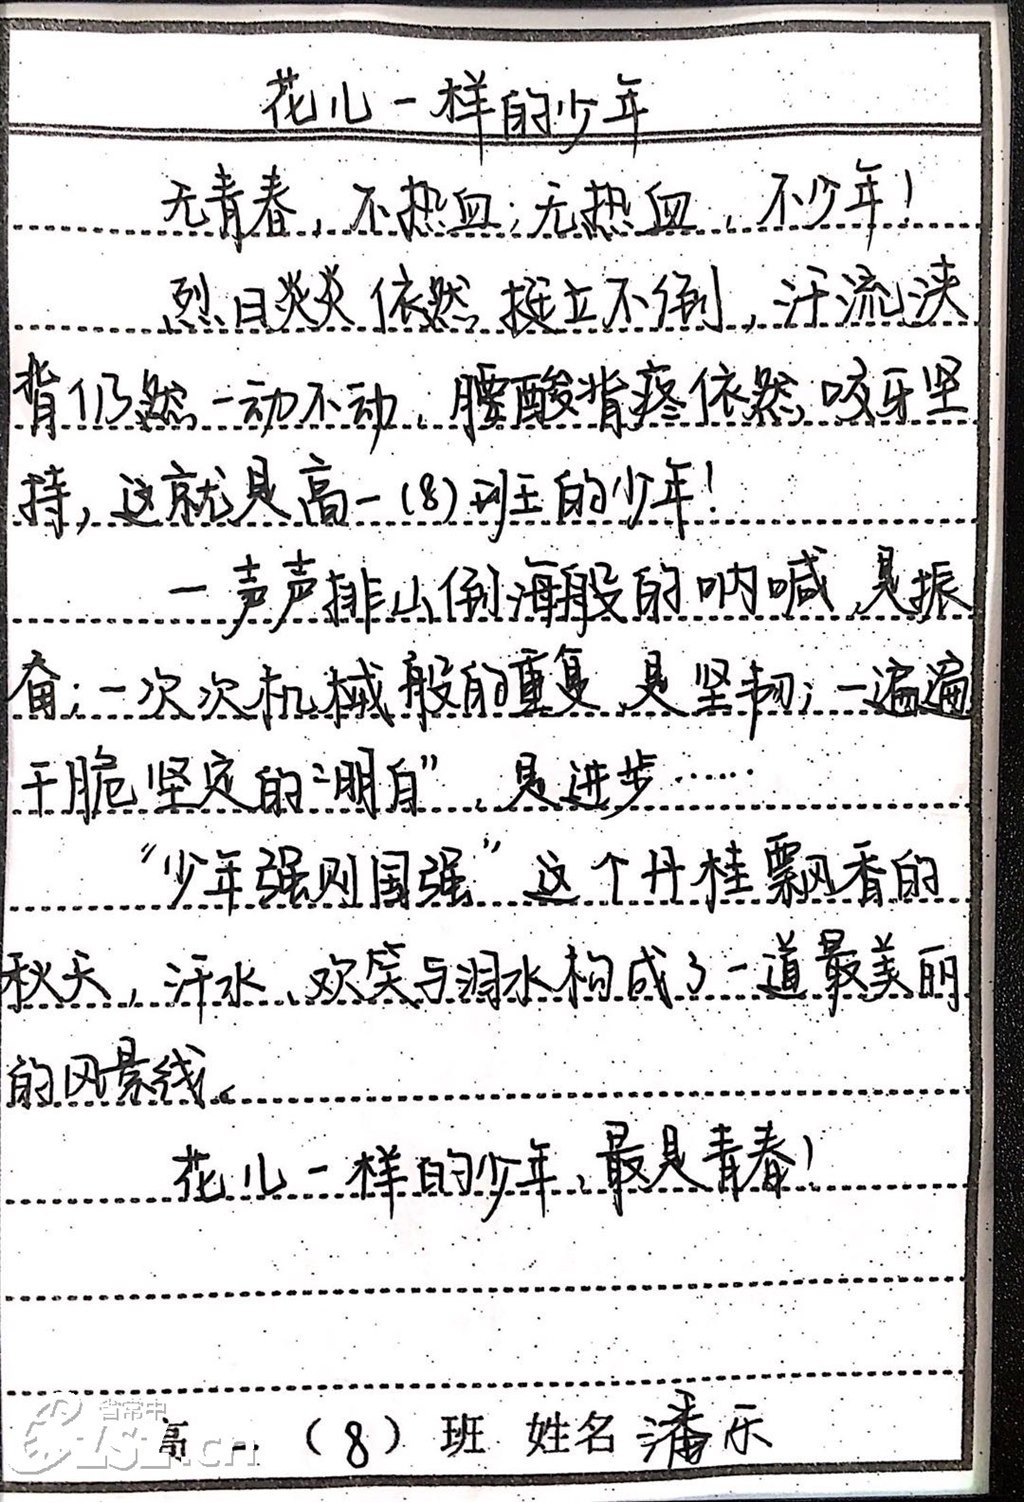 花儿一样的少年
无青春，不热血；无热血，不少年！
烈日炎炎依然挺立不倒，汗流浃
背仍然一动不动，腰酸背疼依然咬牙坚
持，这就是高一(8)班的少年！
一声声排山倒海般的呐喊，是振
奋；一次次机械般的重复，是坚韧；一遍遍
干脆坚定的“明白”，是进步……
“少年强则国强”这个丹桂飘香的
秋天，汗水、欢笑与泪水构成了一道最美丽
的风景线。
花儿一样的少年，最是青春！
高一（8）班 姓名 潘乐
省常中